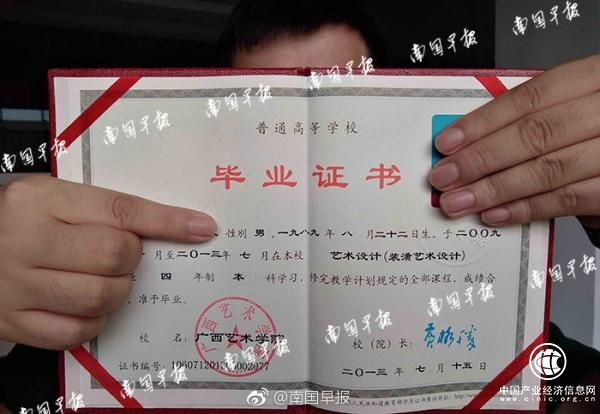 普通高等学校
毕业证书
性别 男,一九八九年 八 月二十二日生,于二〇〇九
月至二〇一三年 七 月在本校 艺术设计(装潢艺术设计)
四 年制 本 科学习,修完教学计划规定的全部课程,成绩合
准予毕业。
广西艺术学院
校 名:广西艺术学院
校(院)长:
证书编号:
二〇一三年 七 月 十五 日
人民共和国教育部学历证书查询网址:
南国早报
南国早报
南国早报
南国早报
南国早报
南国早报
南国早报
南国早报
南国早报
@南国早报
中国产业经济信息网
www.cinic.org.cn